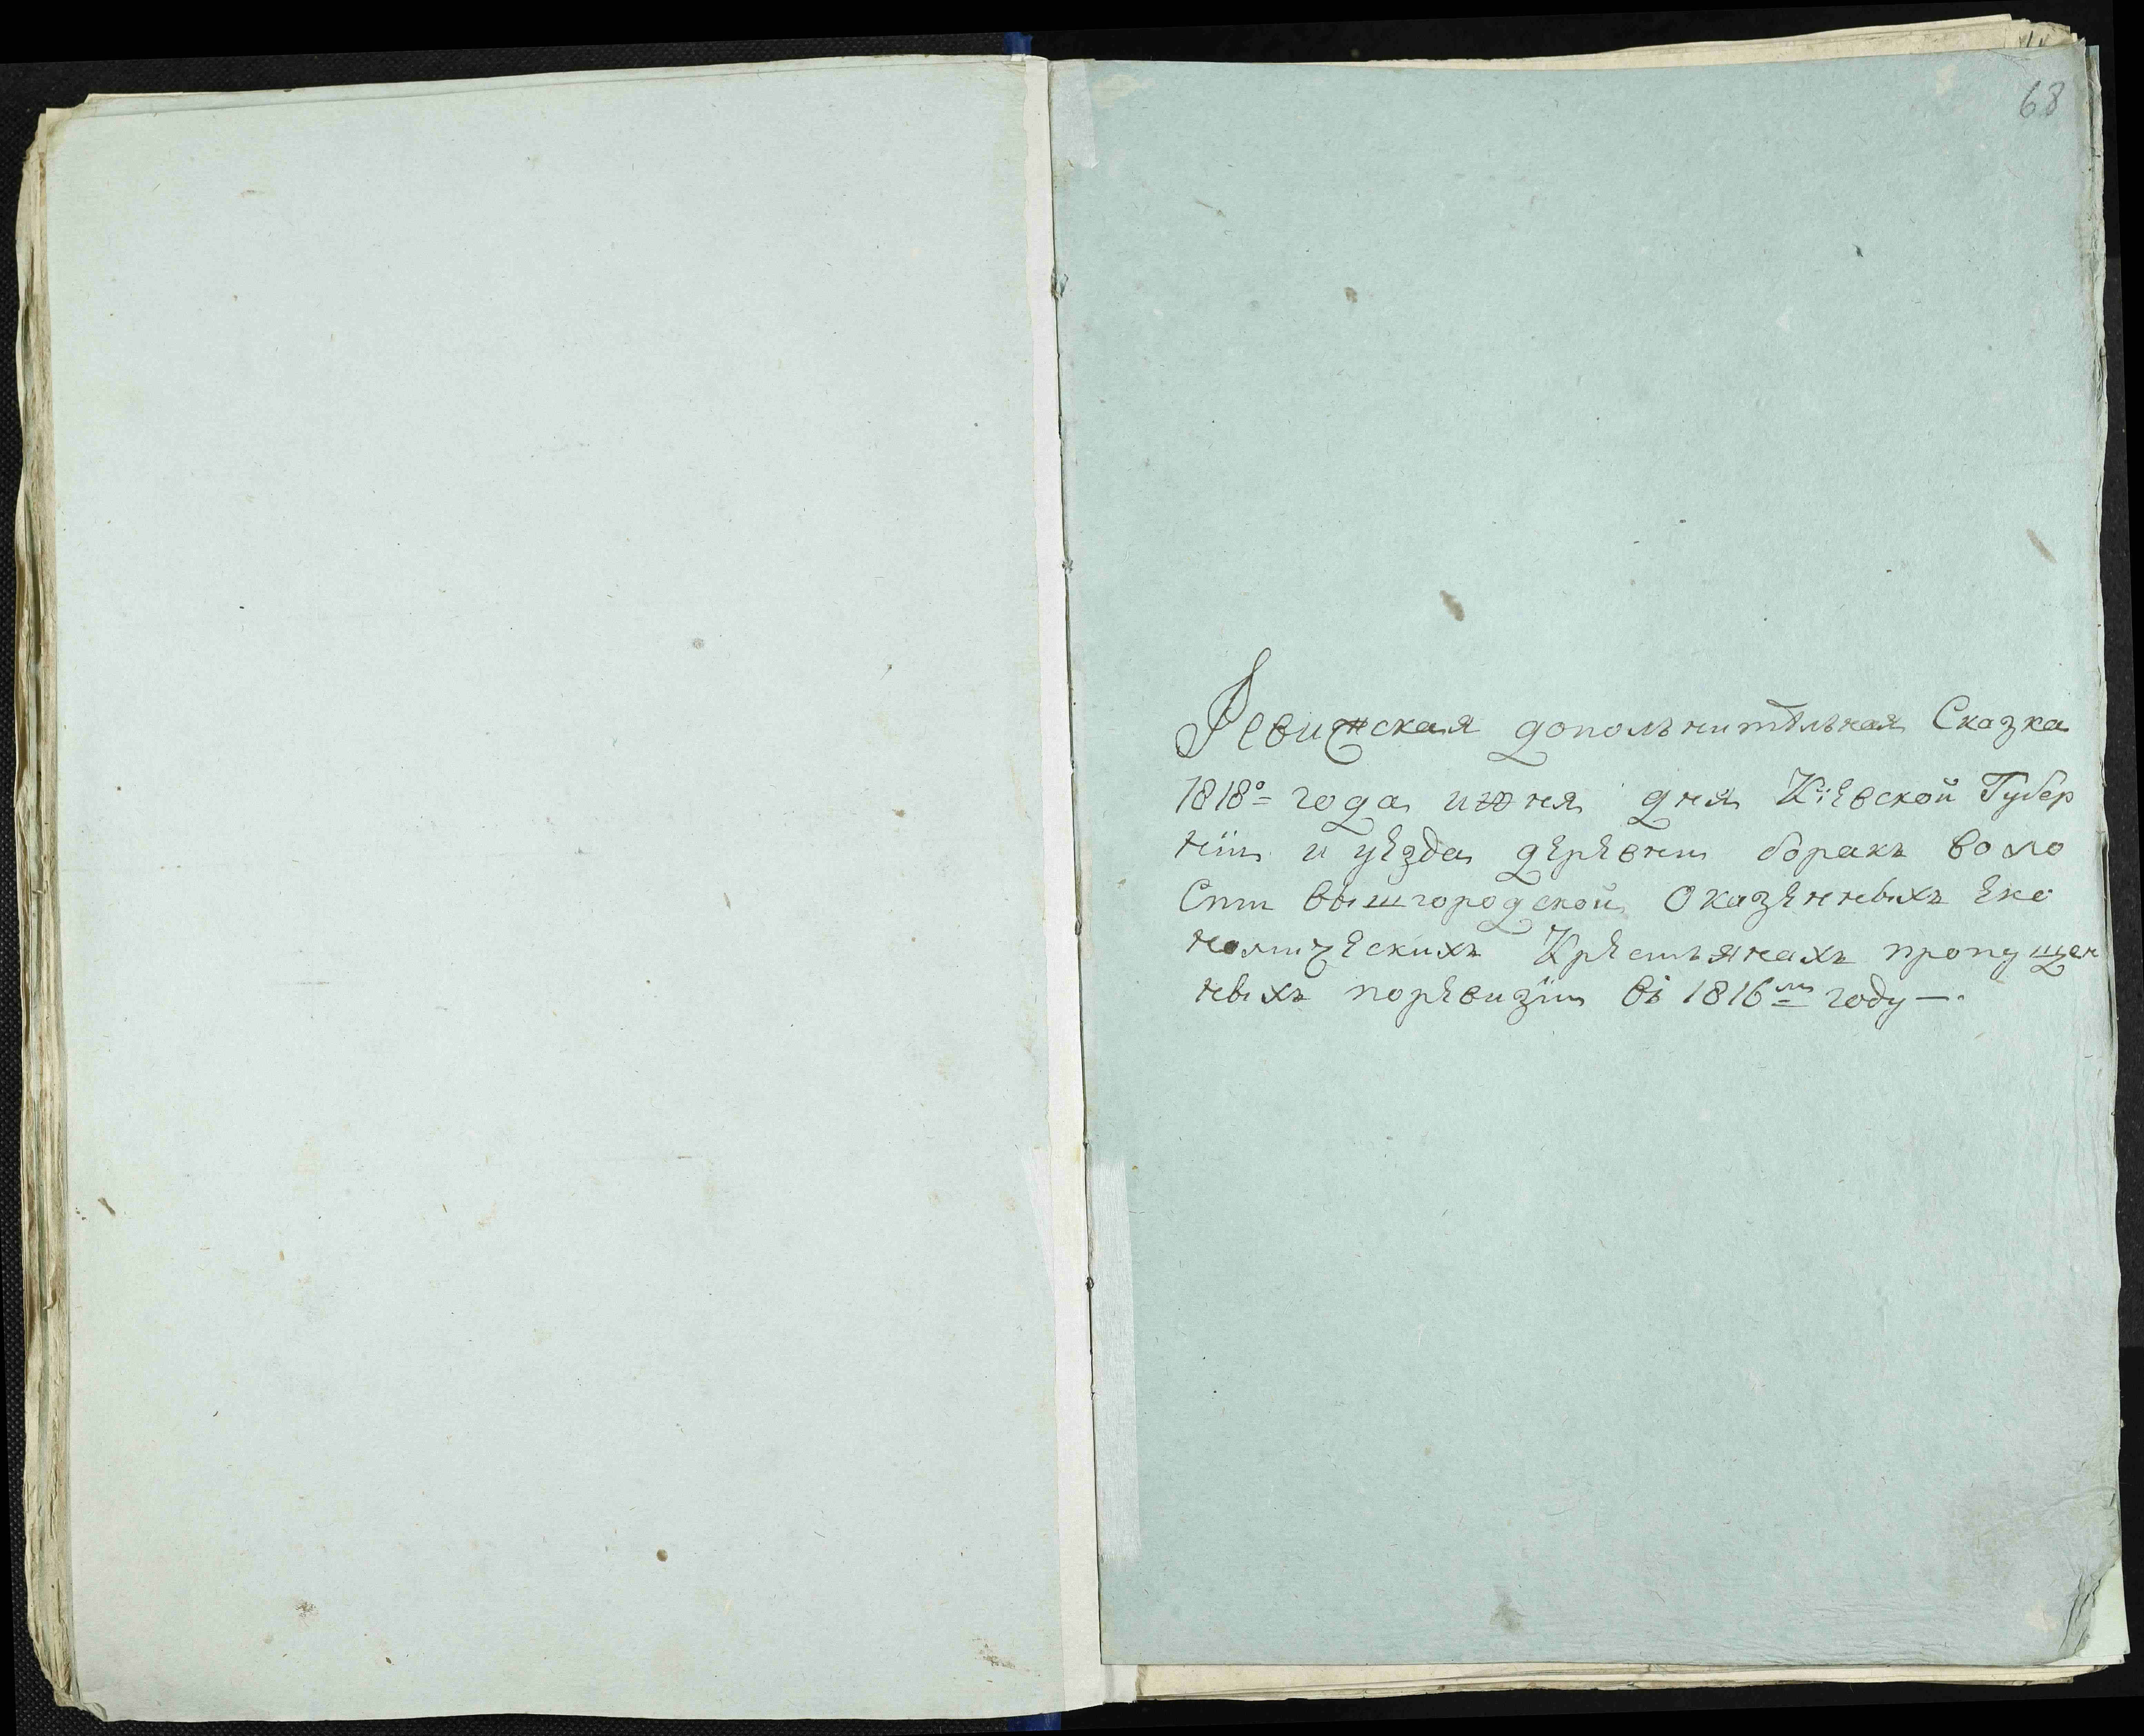 68
Ревижская дополънителъная Сказка
1818º года июня дня Кіевской Губер
ніи и уезда деревни боракъ воло
Сти вышгородской Оказенныхъ Еко
номическихъ Крестъянахъ пропущен
ныхъ поревизіи въ 1816м году —.